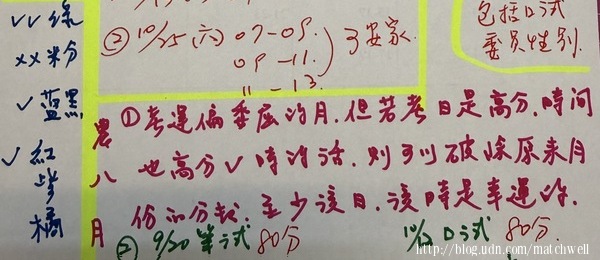 ✓✓ 綠
×× 粉
✓ 蓝黑
✓ 紅
紫
橘
② 10/25 (六) 07-09.
09-11.
11-13.
3安家.
包括口試
委員性別.
農八月
① 考運偏委屈的月. 但若考日是高分. 時間
也高分✓時的話. 則可以破除原来月
份的分数. 至少該日. 該時是幸運的.
② 9/20 筆式 80分
口式 80分
http://blog.udn.com/matchwell